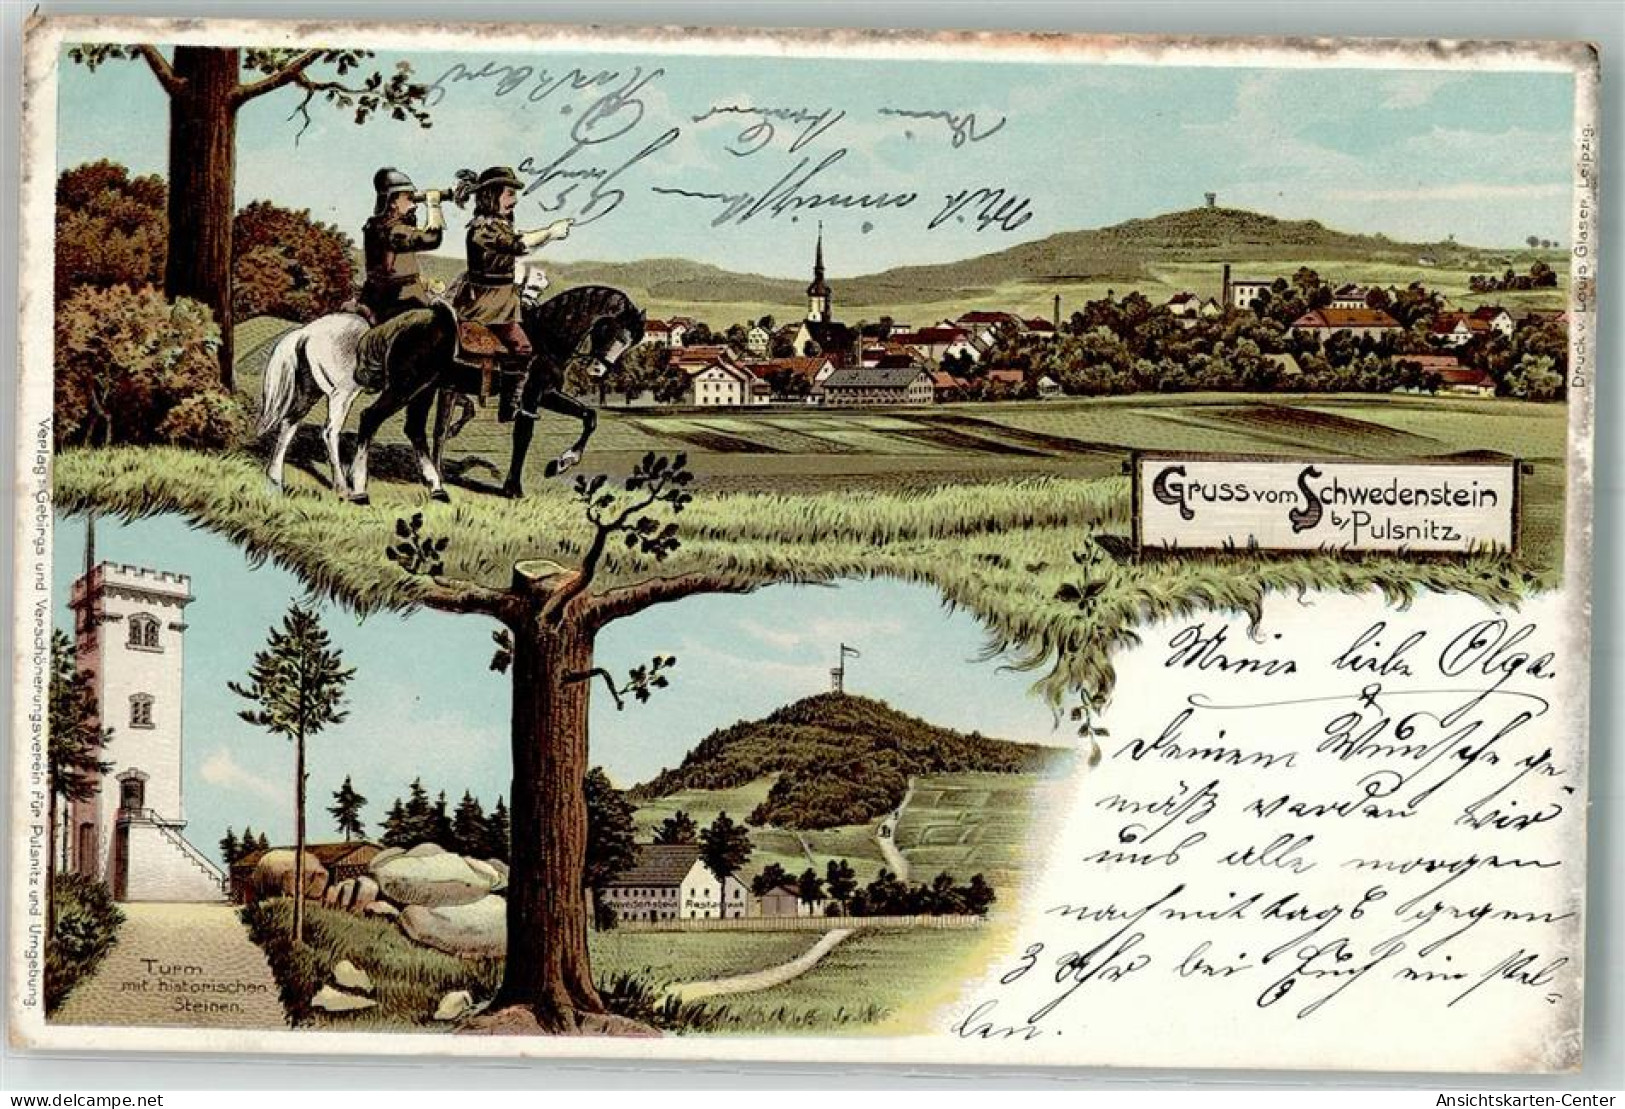 Gruss vom Schwedenstein
b/ Pulsnitz
Druck v. Louis Glaser, Leipzig.
Verlag: Gebirgs und Verschönerungsverein für Pulsnitz und Umgebung.
Turm
mit historischen
Steinen.
Schwedenstein Restaurant
Meine liebe Olga.
Deinem Wunsche ge-
mäß werden wir
uns alle morgen
nachmittags gegen
3 Uhr bei Euch ein stel-
len.
Mit
AnsichtsKarten-Center
www.delcampe.net/de - Ansichtskarten-Center